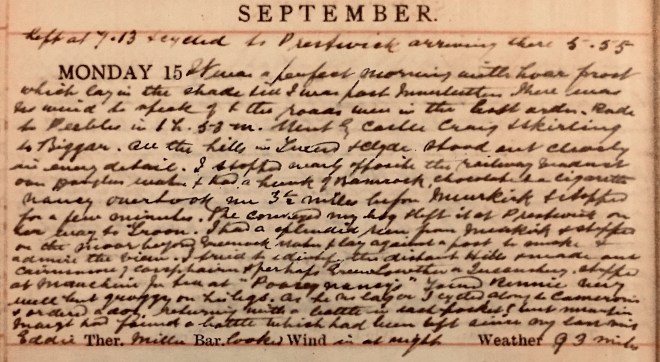 SEPTEMBER.
Left at 7.13 & cycled to Prestwick arriving there 5.55
MONDAY 15 It was a perfect morning with hoar frost
which lay in the shade till I was past Innerleithen. There was
no wind to speak of & the roads were in the best order. Rode
to Peebles in 1 h. 53 m. Went by Castle Craig & Skirling
to Biggar. All the hills in Tweed & Clyde stood out clearly
in every detail. I stopped nearly opposite the railway viaduct
over Douglas water & had a hunk of bannock, chocolate & a cigarette
Nancy overtook me 3½ miles before Muirkirk & stopped
for a few minutes. She conveyed my bag & left it at Prestwick on
her way to Troon. I had a splendid run from Muirkirk & stopped
on the moor beyond against a post to smoke &
admire the view. I tried to identify the distant Hills & made out
Cairnsmore of Carsphairn & perhaps stopped
at Mauchline for tea at "Poosey Nancy's" Found Rennie very
well but groggy on his legs. As he was I cycled along to Cameron's
& ordered a doz. returning with a bottle in each pocket! but
had found a bottle which had been left since my last visit
Eddie Ther. Miller Bar. looked Wind in at night Weather 93 miles